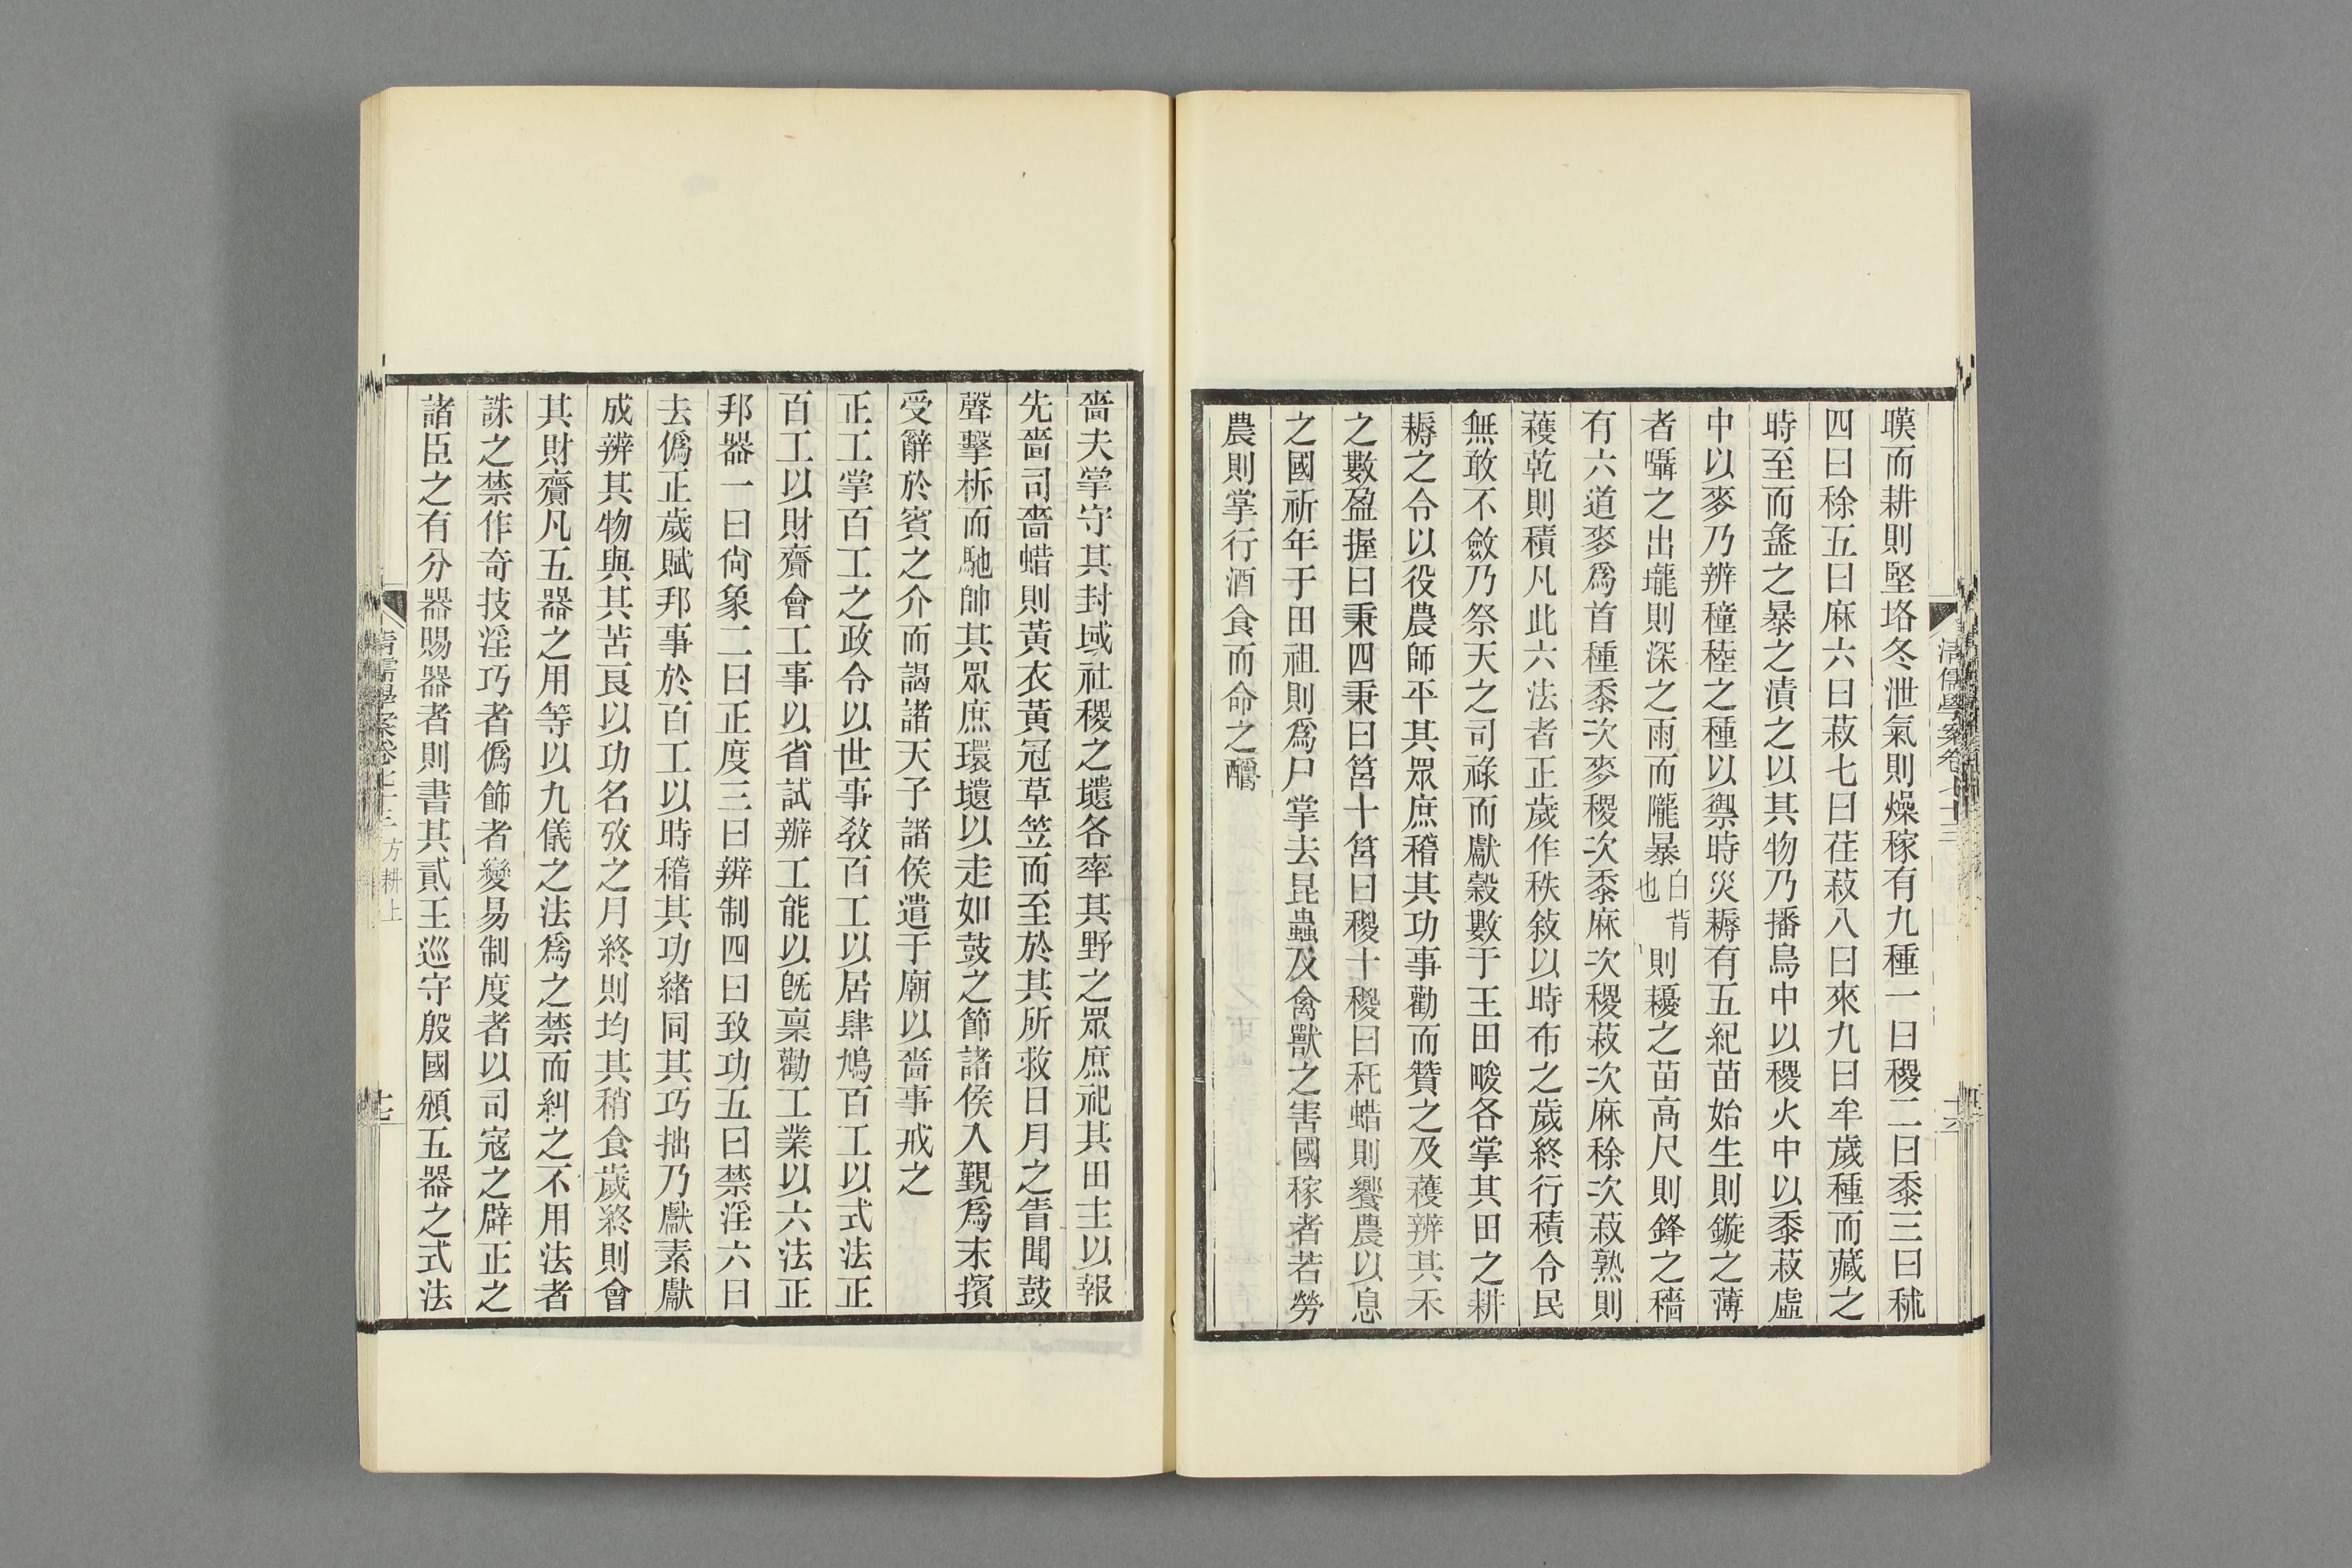 暵而耕則堅垎冬泄氣則燥稼有九種一曰稷二曰黍三曰秫
四曰稌五曰麻六曰菽七曰荏菽八曰來九曰牟歲種而藏之
時至而盝之暴之漬之以其物乃播鳥中以稷火中以黍菽虛
中以麥乃辨穜稑之種以禦時災耨有五紀苗始生則鏇之薄
者囁之出壠則深之雨而隴暴白背也則耰之苗高尺則鋒之穡
有六道麥爲首種黍次麥稷次黍麻次稷菽次麻稌次菽熟則
穫乾則積凡此六法者正歲作秩敍以時布之歲終行積令民
無敢不斂乃祭天之司祿而獻穀數于王田畯各掌其田之耕
耨之令以役農師平其眾庶稽其功事勸而贊之及穫辨其禾
之數盈握曰秉四秉曰筥十筥曰稯十稯曰秅蜡則饗農以息
之國祈年于田祖則爲尸掌去昆蟲及禽獸之害國稼者若勞
農則掌行酒食而命之醻
嗇夫掌守其封域社稷之壝各率其野之眾庶祀其田主以報
先嗇司嗇蜡則黃衣黃冠草笠而至於其所救日月之眚聞鼓
聲擊柝而馳帥其眾庶環壝以走如鼓之節諸侯入覲爲末擯
受辭於賓之介而謁諸天子諸侯遣于廟以嗇事戒之
正工掌百工之政令以世事敎百工以居肆鳩百工以式法正
百工以財齎會工事以省試辦工能以旣稟勸工業以六法正
邦器一曰尙象二曰正度三曰辨制四曰致功五曰禁淫六曰
去僞正歲賦邦事於百工以時稽其功緖同其巧拙乃獻素獻
成辨其物與其苦良以功名攷之月終則均其稍食歲終則會
其財齎凡五器之用等以九儀之法爲之禁而糾之不用法者
誅之禁作奇技淫巧者僞飾者變易制度者以司寇之辟正之
諸臣之有分器賜器者則書其貳王巡守殷國頒五器之式法
清儒學案卷七十三 方耕上
十七